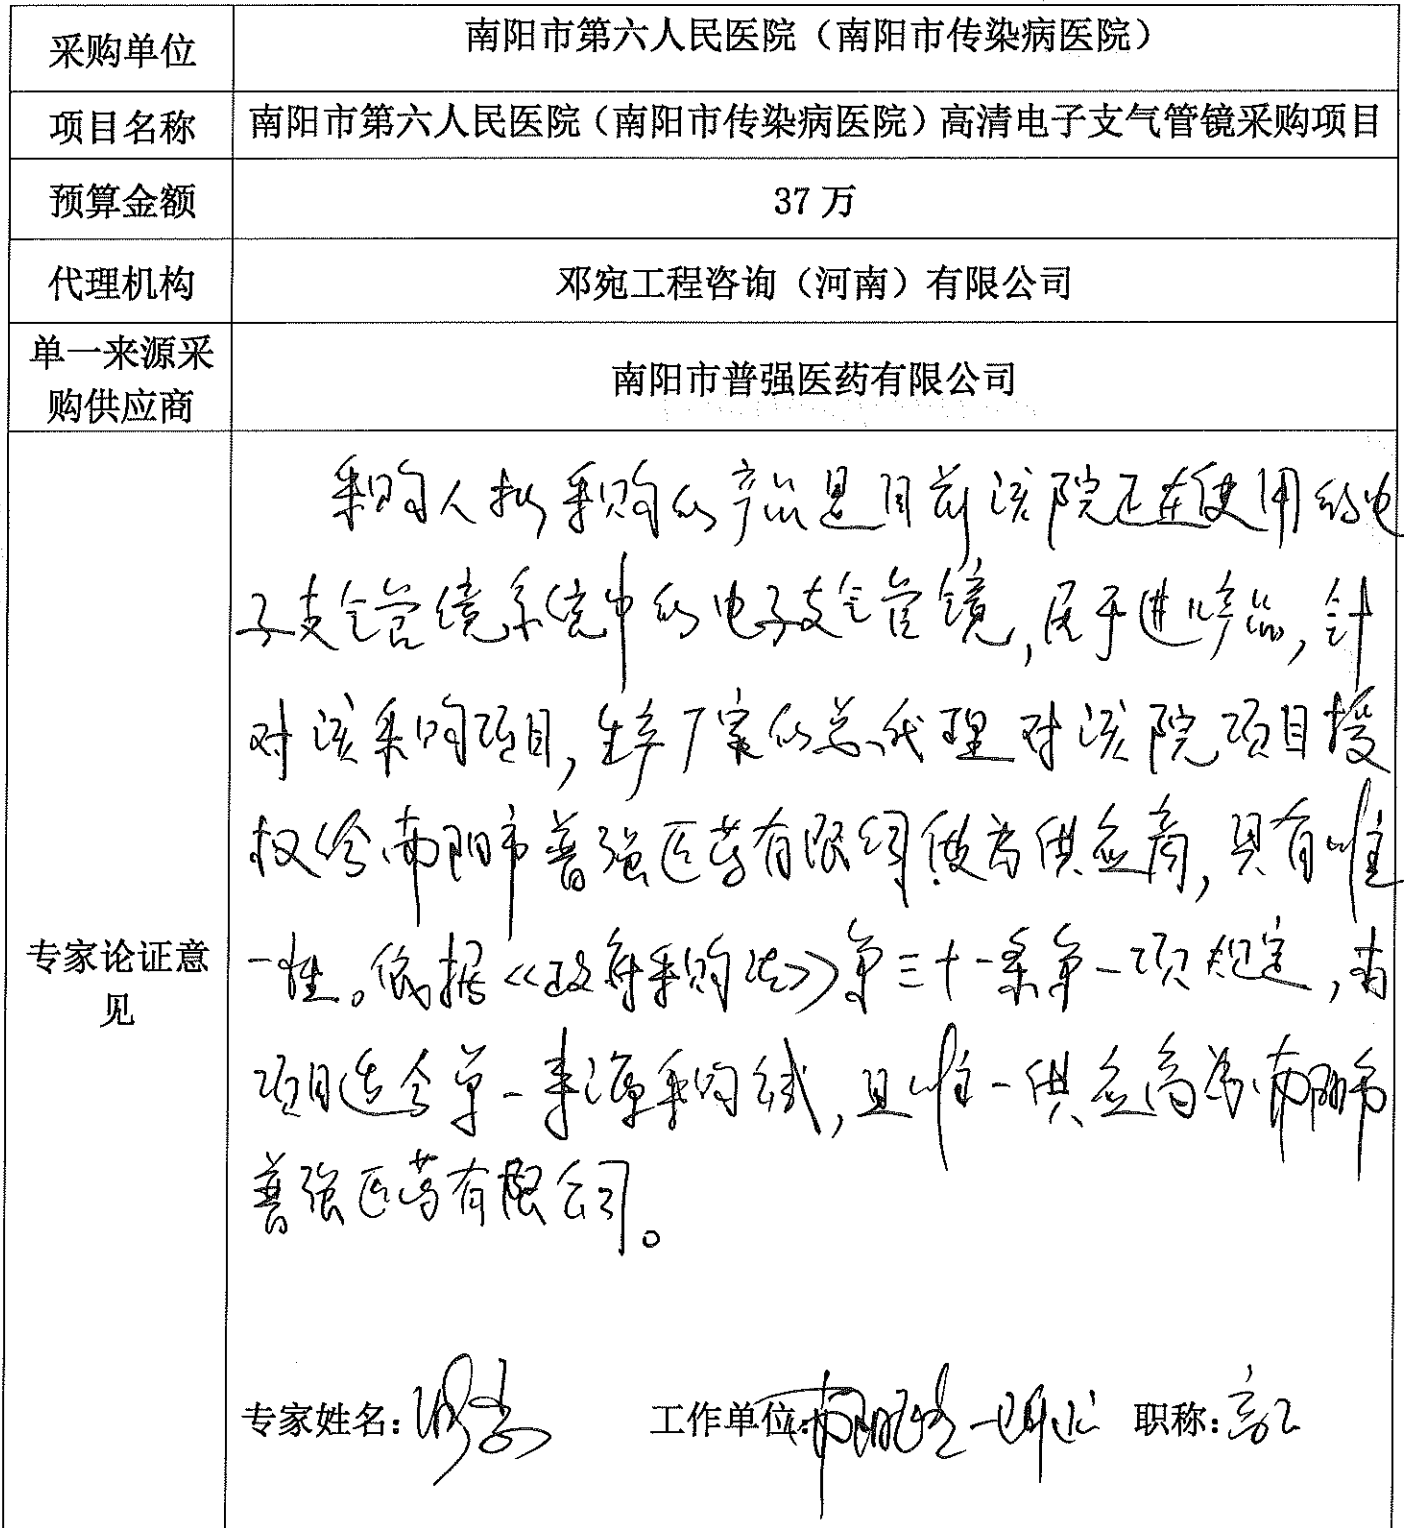 采购单位
南阳市第六人民医院（南阳市传染病医院）
项目名称
南阳市第六人民医院（南阳市传染病医院）高清电子支气管镜采购项目
预算金额
37 万
代理机构
邓宛工程咨询（河南）有限公司
单一来源采
购供应商
南阳市普强医药有限公司
专家论证意
见
采购人拟采购的产品是目前该院正在使用的电
子支气管镜系统中的电子支气管镜，属于进口产品，针
对该采购项目，生产厂家的总代理对该院项目授
权给南阳市普强医药有限公司做为供应商，具有唯
一性。依据《政府采购法》第三十一条第一项规定，本
项目适合单一来源采购方式，且唯一供应商为南阳市
普强医药有限公司。
专家姓名：
工作单位：南阳医专一附院
职称：高工